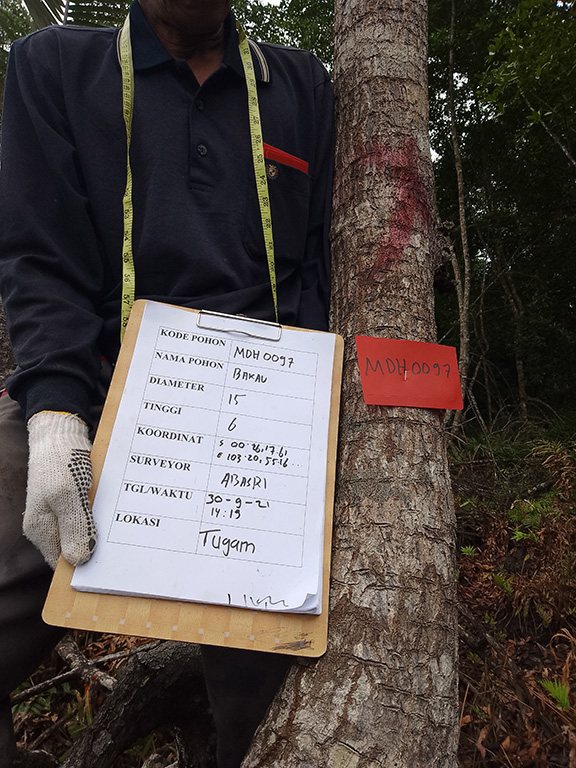 KODE POHON MDH 0097
NAMA POHON BAKAU
DIAMETER 15
TINGGI 6
KOORDINAT S 00.26,17.61
E 103.20,55.16...
SURVEYOR ABASRI
TGL/WAKTU 30-9-21
14:19
LOKASI Tugam
MDH0097